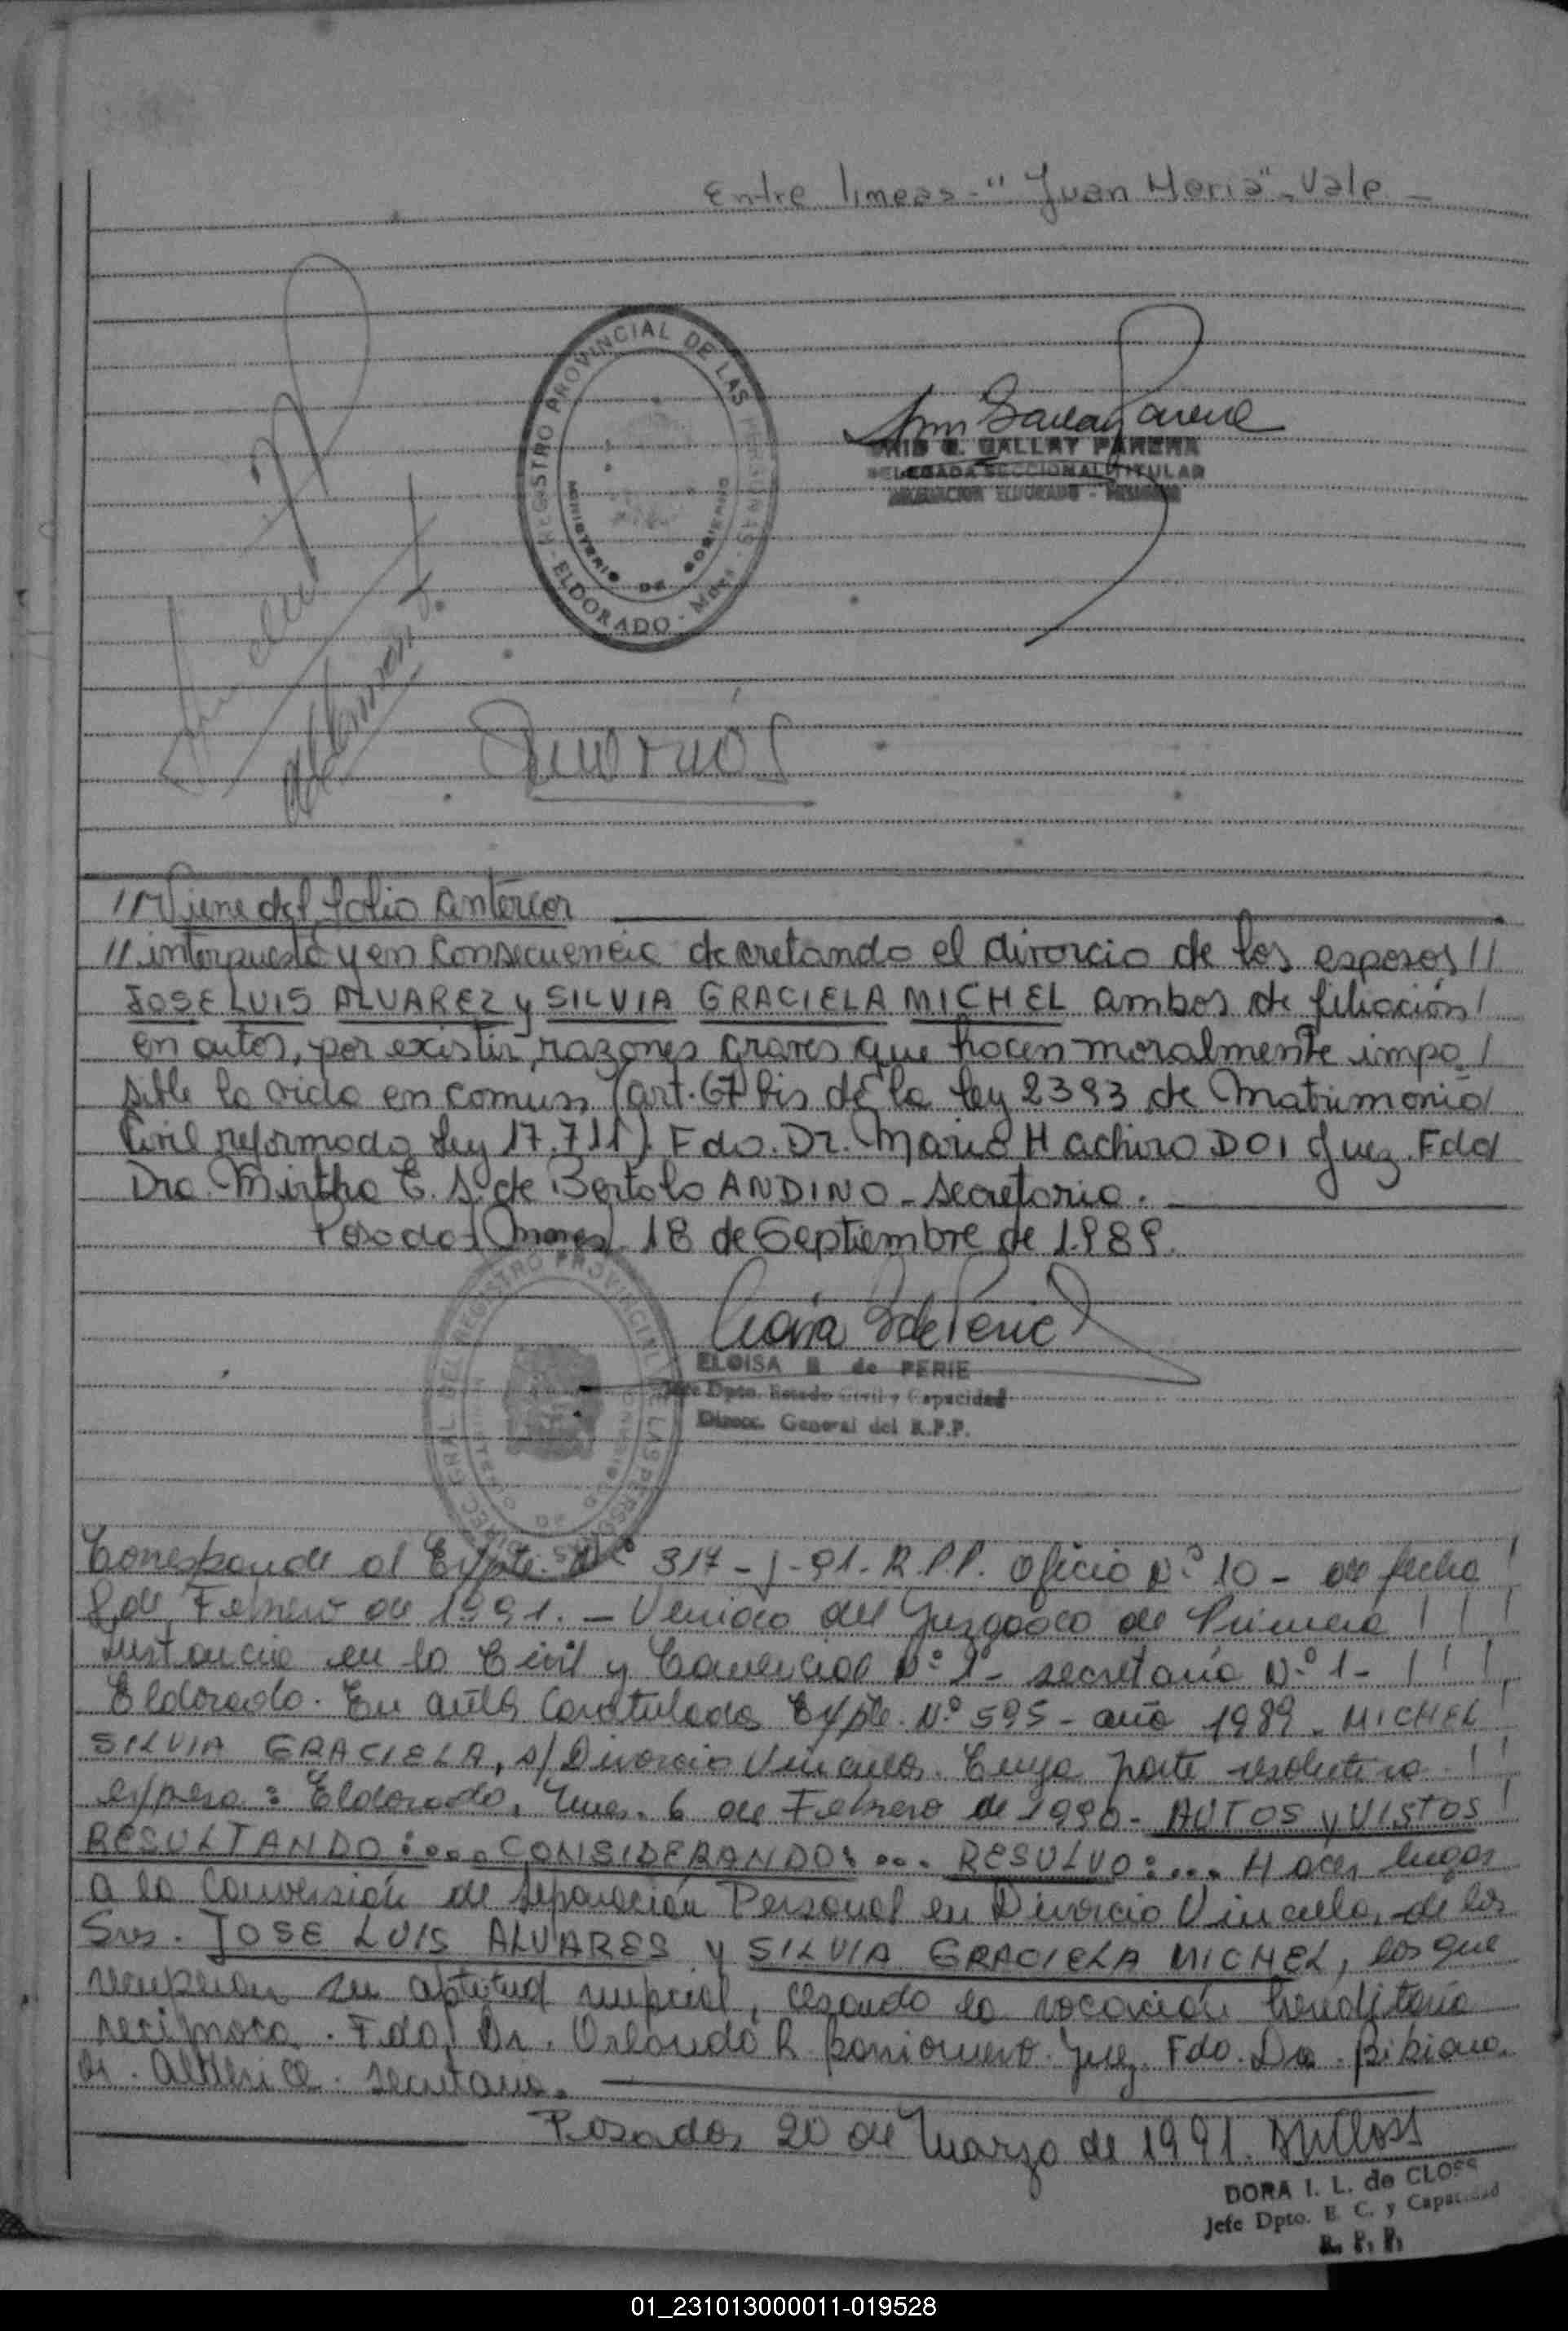 Entre lineas - "Juan Maria" - Vale -
REGISTRO PROVINCIAL DE LAS PERSONAS
MINISTERIO DE GOBIERNO
ELDORADO - Mnes
GALLAY PARERA
DELEGADA SECCIONAL TITULAR
ELDORADO - MISIONES
//Viene del folio anterior
// interpuesta y en consecuencia decretando el divorcio de los esposos //
JOSE LUIS ALVAREZ y SILVIA GRACIELA MICHEL ambos de filiación /
en autos, por existir razones graves que hacen moralmente impo /
sible la vida en comun (art. 67 bis de la ley 2393 de Matrimonio /
Civil reformada ley 17.711). Fdo. Dr. Mario Hachiro DOI Juez. Fdo
Dra. Mirtha E. S. de Bertolo ANDINO - Secretaria.
Posadas (Mnes) 18 de Septiembre de 1989.
ELOISA B de PERIE
Jefe Dpto. Estado Civil y Capacidad
Direcc. General del R.P.P.
Corresponde al Expte. Nº 317 - J - 91 - R.P.P. Oficio Nº 10 - de fecha !
8 de Febrero de 1991. - Venido del Juzgado de Primera ! ! !
Instancia en lo Civil y Comercial Nº 1º - secretaria Nº 1 - ! ! !
Eldorado. En autos Caratulados Expte. Nº 595 - año 1989. MICHEL !
SILVIA GRACIELA, s/ Divorcio Vincular. Cuya parte resolutiva ! !
expresa: Eldorado, Mnes. 6 de Febrero de 1990 - AUTOS y VISTOS !
RESULTANDO:... CONSIDERANDO:... RESULVO:... Hacer lugar
a la Conversión de Separación Personal en Divorcio Vincular, de los
Sres. JOSE LUIS ALVARES y SILVIA GRACIELA MICHEL, los que
recuperan su aptitud nupcial, cesando la vocación hereditaria
reciproca. Fdo. Dr. Orlando R. Juez. Fdo. Dra. Bibiana
secretaria.
Posadas 20 de Marzo de 1991.
DORA I. L. de CLOSS
Jefe Dpto. E. C. y Capacidad
R. P. P.
01_231013000011-019528